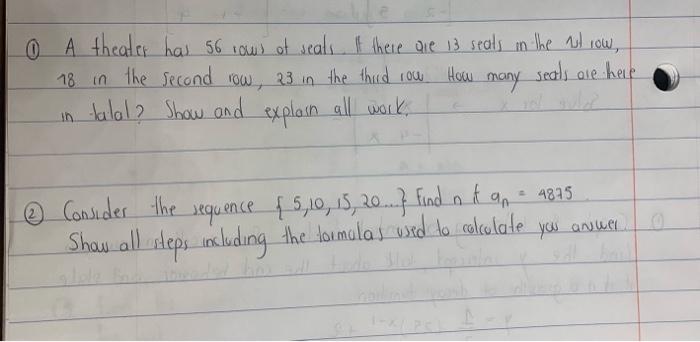 ① A theater has 56 rows of seats. If there are 13 seats in the 1st row,
18 in the second row, 23 in the third row. How many seats are here
in total? Show and explain all work.
② Consider the sequence { 5,10,15,20...} Find n if aₙ = 4875
Show all steps including the formulas used to calculate your answer.